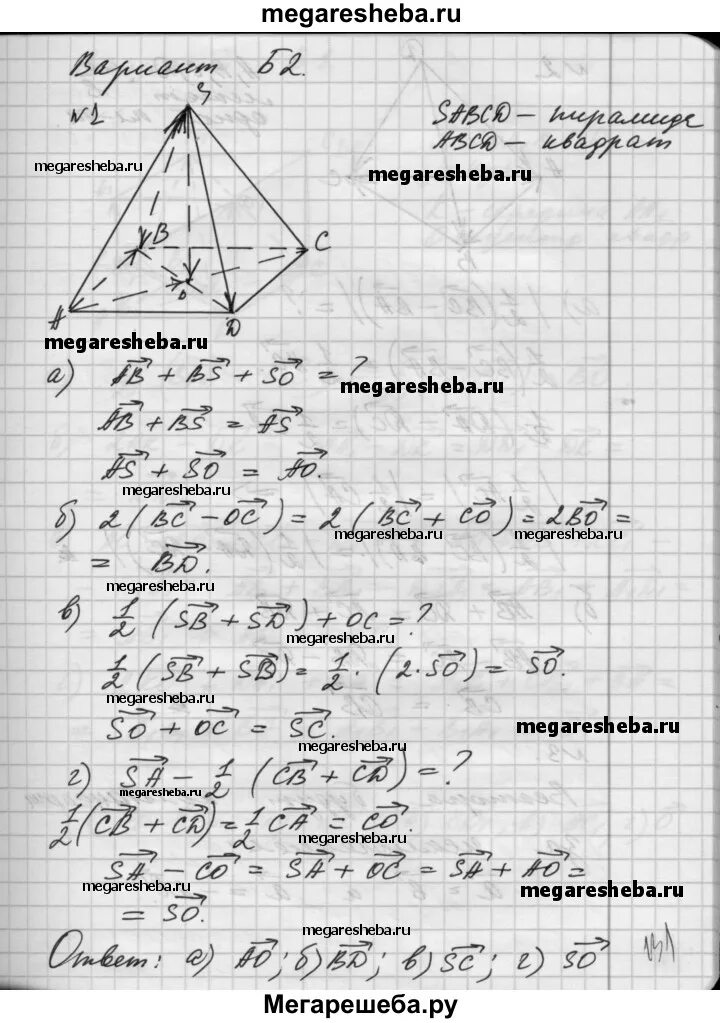 megaresheba.ru
Вариант Б2.
№1
S
SABCD — пирамида
ABCD — квадрат
megaresheba.ru
megaresheba.ru
B
C
A
D
megaresheba.ru
а) AB + BS + SO = ?
megaresheba.ru
AB + BS = AS
AS + SO = AO.
megaresheba.ru
б) 2(BC − OC) = 2(BC + CO) = 2BO =
megaresheba.ru
= BD.
megaresheba.ru
в) 1/2 (SB + SD) + OC = ?
megaresheba.ru
1/2 (SB + SD) = 1/2 · (2·SO) = SO.
megaresheba.ru
SO + OC = SC.
megaresheba.ru
megaresheba.ru
г) SA − 1/2 (CB + CD) = ?
megaresheba.ru
1/2 (CB + CD) = 1/2 CA = CO.
megaresheba.ru
SA − CO = SA + OC = SA + AO =
megaresheba.ru
megaresheba.ru
= SO.
megaresheba.ru
Ответ: а) AO; б) BD; в) SC; г) SO
megaresheba.ru
Мегарешеба.ру